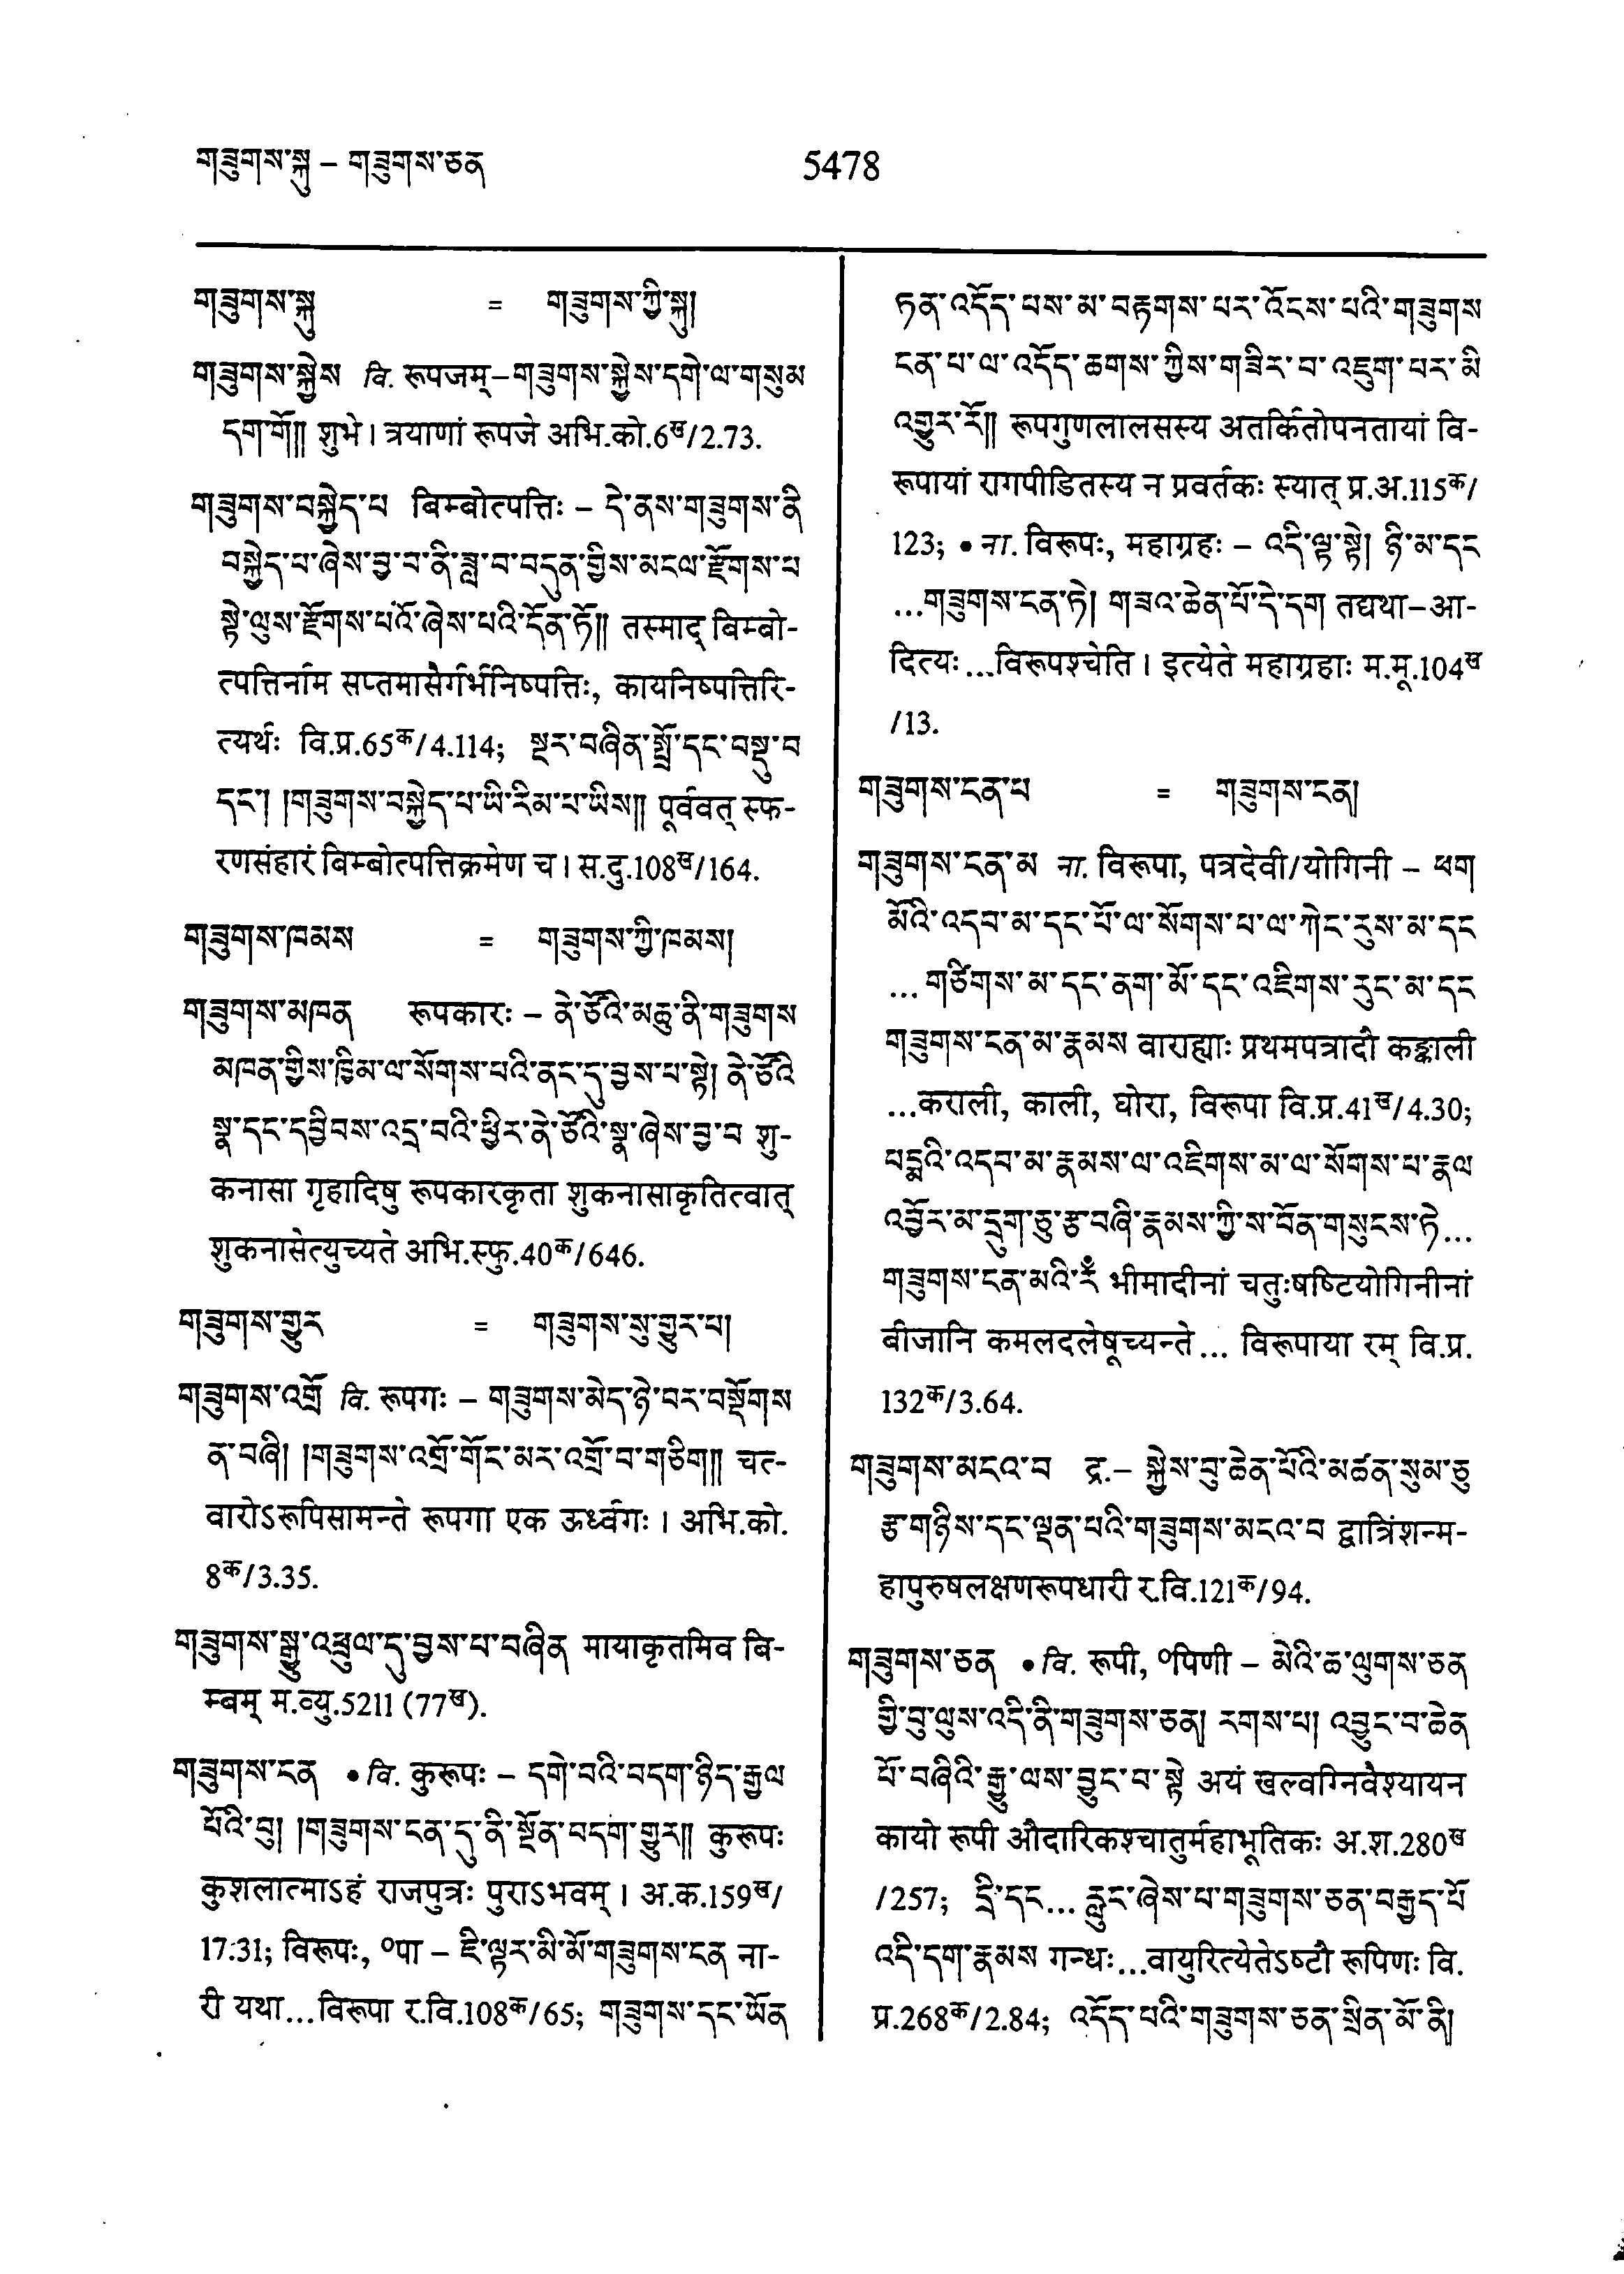 གཟུགས་སྐུ – གཟུགས་ཅན
5478
གཟུགས་སྐུ = གཟུགས་ཀྱི་སྐུ།
གཟུགས་སྐྱེས वि. रूपजम्–གཟུགས་སྐྱེས་དགེ་ལ་གསུམ
དག་གོ།། शुभे । त्रयाणां रूपजे अभि.को.6ख/2.73.
གཟུགས་བསྐྱེད་པ बिम्बोत्पत्तिः – དེ་ནས་གཟུགས་ནི
བསྐྱེད་པ་ཞེས་བྱ་བ་ནི་ཟླ་བ་བདུན་གྱིས་མངལ་རྫོགས་པ
སྟེ་ལུས་རྫོགས་པའོ་ཞེས་པའི་དོན་ཏོ།། तस्माद् बिम्बो-
त्पत्तिर्नाम सप्तमासैर्गर्भनिष्पत्तिः, कायनिष्पत्तिरि-
त्यर्थः वि.प्र.65क/4.114; སྔར་བཞིན་སྤྲོ་དང་བསྡུ་བ
དང་། །གཟུགས་བསྐྱེད་པ་ཡི་རིམ་པ་ཡིས།། पूर्ववत् स्फ-
रणसंहारं बिम्बोत्पत्तिक्रमेण च । स.दु.108ख/164.
གཟུགས་ཁམས = གཟུགས་ཀྱི་ཁམས།
གཟུགས་མཁན रूपकारः – ནེ་ཙོའི་མཆུ་ནི་གཟུགས
མཁན་གྱིས་ཁྱིམ་ལ་སོགས་པའི་ནང་དུ་བྱས་པ་སྟེ། ནེ་ཙོའི
སྣ་དང་དབྱིབས་འདྲ་བའི་ཕྱིར་ནེ་ཙོའི་སྣ་ཞེས་བྱ་བ शु-
कनासा गृहादिषु रूपकारकृता शुकनासाकृतित्वात्
शुकनासेत्युच्यते अभि.स्फु.40क/646.
གཟུགས་གྱུར = གཟུགས་སུ་གྱུར་པ།
གཟུགས་འགྲོ वि. रूपगः – གཟུགས་མེད་ཉེ་བར་བསྡོགས
ན་བཞི། །གཟུགས་འགྲོ་གོང་མར་འགྲོ་བ་གཅིག།། चत-
वारोऽरूपिसामन्ते रूपगा एक ऊर्ध्वगः । अभि.को.
8क/3.35.
གཟུགས་སྒྱུ་འཕྲུལ་དུ་བྱས་པ་བཞིན मायाकृतमिव बि-
म्बम् म.व्यु.5211 (77ख).
གཟུགས་ངན • वि. कुरूपः – དགེ་བའི་བདག་ཉིད་རྒྱལ
པོའི་བུ། །གཟུགས་ངན་དུ་ནི་སྔོན་བདག་གྱུར།། कुरूपः
कुशलात्माऽहं राजपुत्रः पुराऽभवम् । अ.क.159ख/
17.31; विरूपः, ०पा – ཇི་ལྟར་མི་མོ་གཟུགས་ངན ना-
री यथा...विरूपा र.वि.108क/65; གཟུགས་དང་ཡོན
ཏན་འདོད་པས་མ་བརྟགས་པར་འོངས་པའི་གཟུགས
ངན་པ་ལ་འདོད་ཆགས་ཀྱིས་གཟིར་བ་འཇུག་པར་མི
འགྱུར་རོ།། रूपगुणलालसस्य अतर्कितोपनतायां वि-
रूपायां रागपीडितस्य न प्रवर्तकः स्यात् प्र.अ.115क/
123; • ना. विरूपः, महाग्रहः – འདི་ལྟ་སྟེ། ཉི་མ་དང
...གཟུགས་ངན་ཏེ། གཟའ་ཆེན་པོ་དེ་དག तद्यथा–आ-
दित्यः...विरूपश्चेति । इत्येते महाग्रहाः म.मू.104ख
/13.
གཟུགས་ངན་པ = གཟུགས་ངན།
གཟུགས་ངན་མ ना. विरूपा, पत्रदेवी/योगिनी – ཕག
མོའི་འདབ་མ་དང་པོ་ལ་སོགས་པ་ལ་ཀེང་རུས་མ་དང
... གཙིགས་མ་དང་ནག་མོ་དང་འཇིགས་རུང་མ་དང
གཟུགས་ངན་མ་རྣམས वाराह्याः प्रथमपत्रादौ कङ्काली
...कराली, काली, घोरा, विरूपा वि.प्र.41ख/4.30;
པདྨའི་འདབ་མ་རྣམས་ལ་འཇིགས་མ་ལ་སོགས་པ་རྣལ
འབྱོར་མ་དྲུག་ཅུ་རྩ་བཞི་རྣམས་ཀྱི་ས་བོན་གསུངས་ཏེ...
གཟུགས་ངན་མའི་རཾ भीमादीनां चतुःषष्टियोगिनीनां
बीजानि कमलदलेषूच्यन्ते... विरूपाया रम् वि.प्र.
132क/3.64.
གཟུགས་མངའ་བ द्र.– སྐྱེས་བུ་ཆེན་པོའི་མཚན་སུམ་ཅུ
རྩ་གཉིས་དང་ལྡན་པའི་གཟུགས་མངའ་བ द्वात्रिंशन्म-
हापुरुषलक्षणरूपधारी र.वि.121क/94.
གཟུགས་ཅན • वि. रूपी, ०पिणी – མེའི་ཆ་ལུགས་ཅན
གྱི་བུ་ལུས་འདི་ནི་གཟུགས་ཅན། རགས་པ། འབྱུང་བ་ཆེན
པོ་བཞིའི་རྒྱུ་ལས་བྱུང་བ་སྟེ अयं खल्वग्निवैश्यायन
कायो रूपी औदारिकश्चातुर्महाभूतिकः अ.श.280ख
/257; དྲི་དང... རླུང་ཞེས་པ་གཟུགས་ཅན་བརྒྱད་པོ
འདི་དག་རྣམས गन्धः...वायुरित्येतेऽष्टौ रूपिणः वि.
प्र.268क/2.84; འདོད་པའི་གཟུགས་ཅན་སྲིན་མོ་ནི།